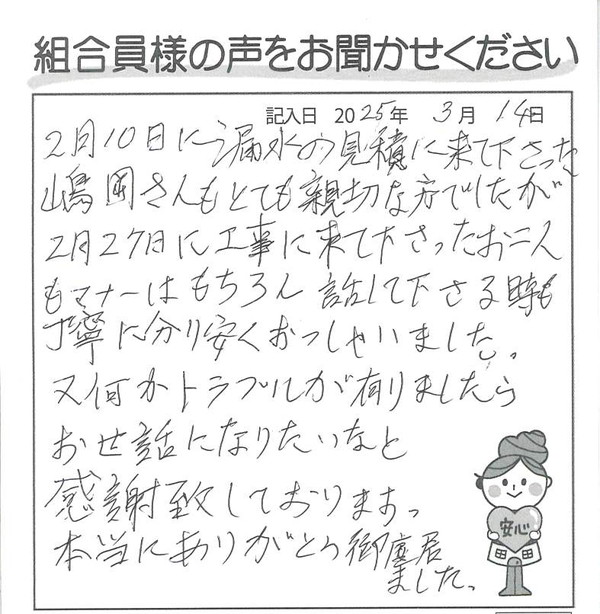 組合員様の声をお聞かせください
記入日 2025年 3月 14日
2月10日に漏水の見積に来て下さった
嶋岡さんもとても親切な方でしたが
2月27日に工事に来て下さったお二人
もマナーはもちろん 話して下さる時も
丁寧に分り安くおっしゃいました。
又何かトラブルが有りましたら
おせ話になりたいなと
感謝致しております。
本当にありがとう御座居
ました。
安心